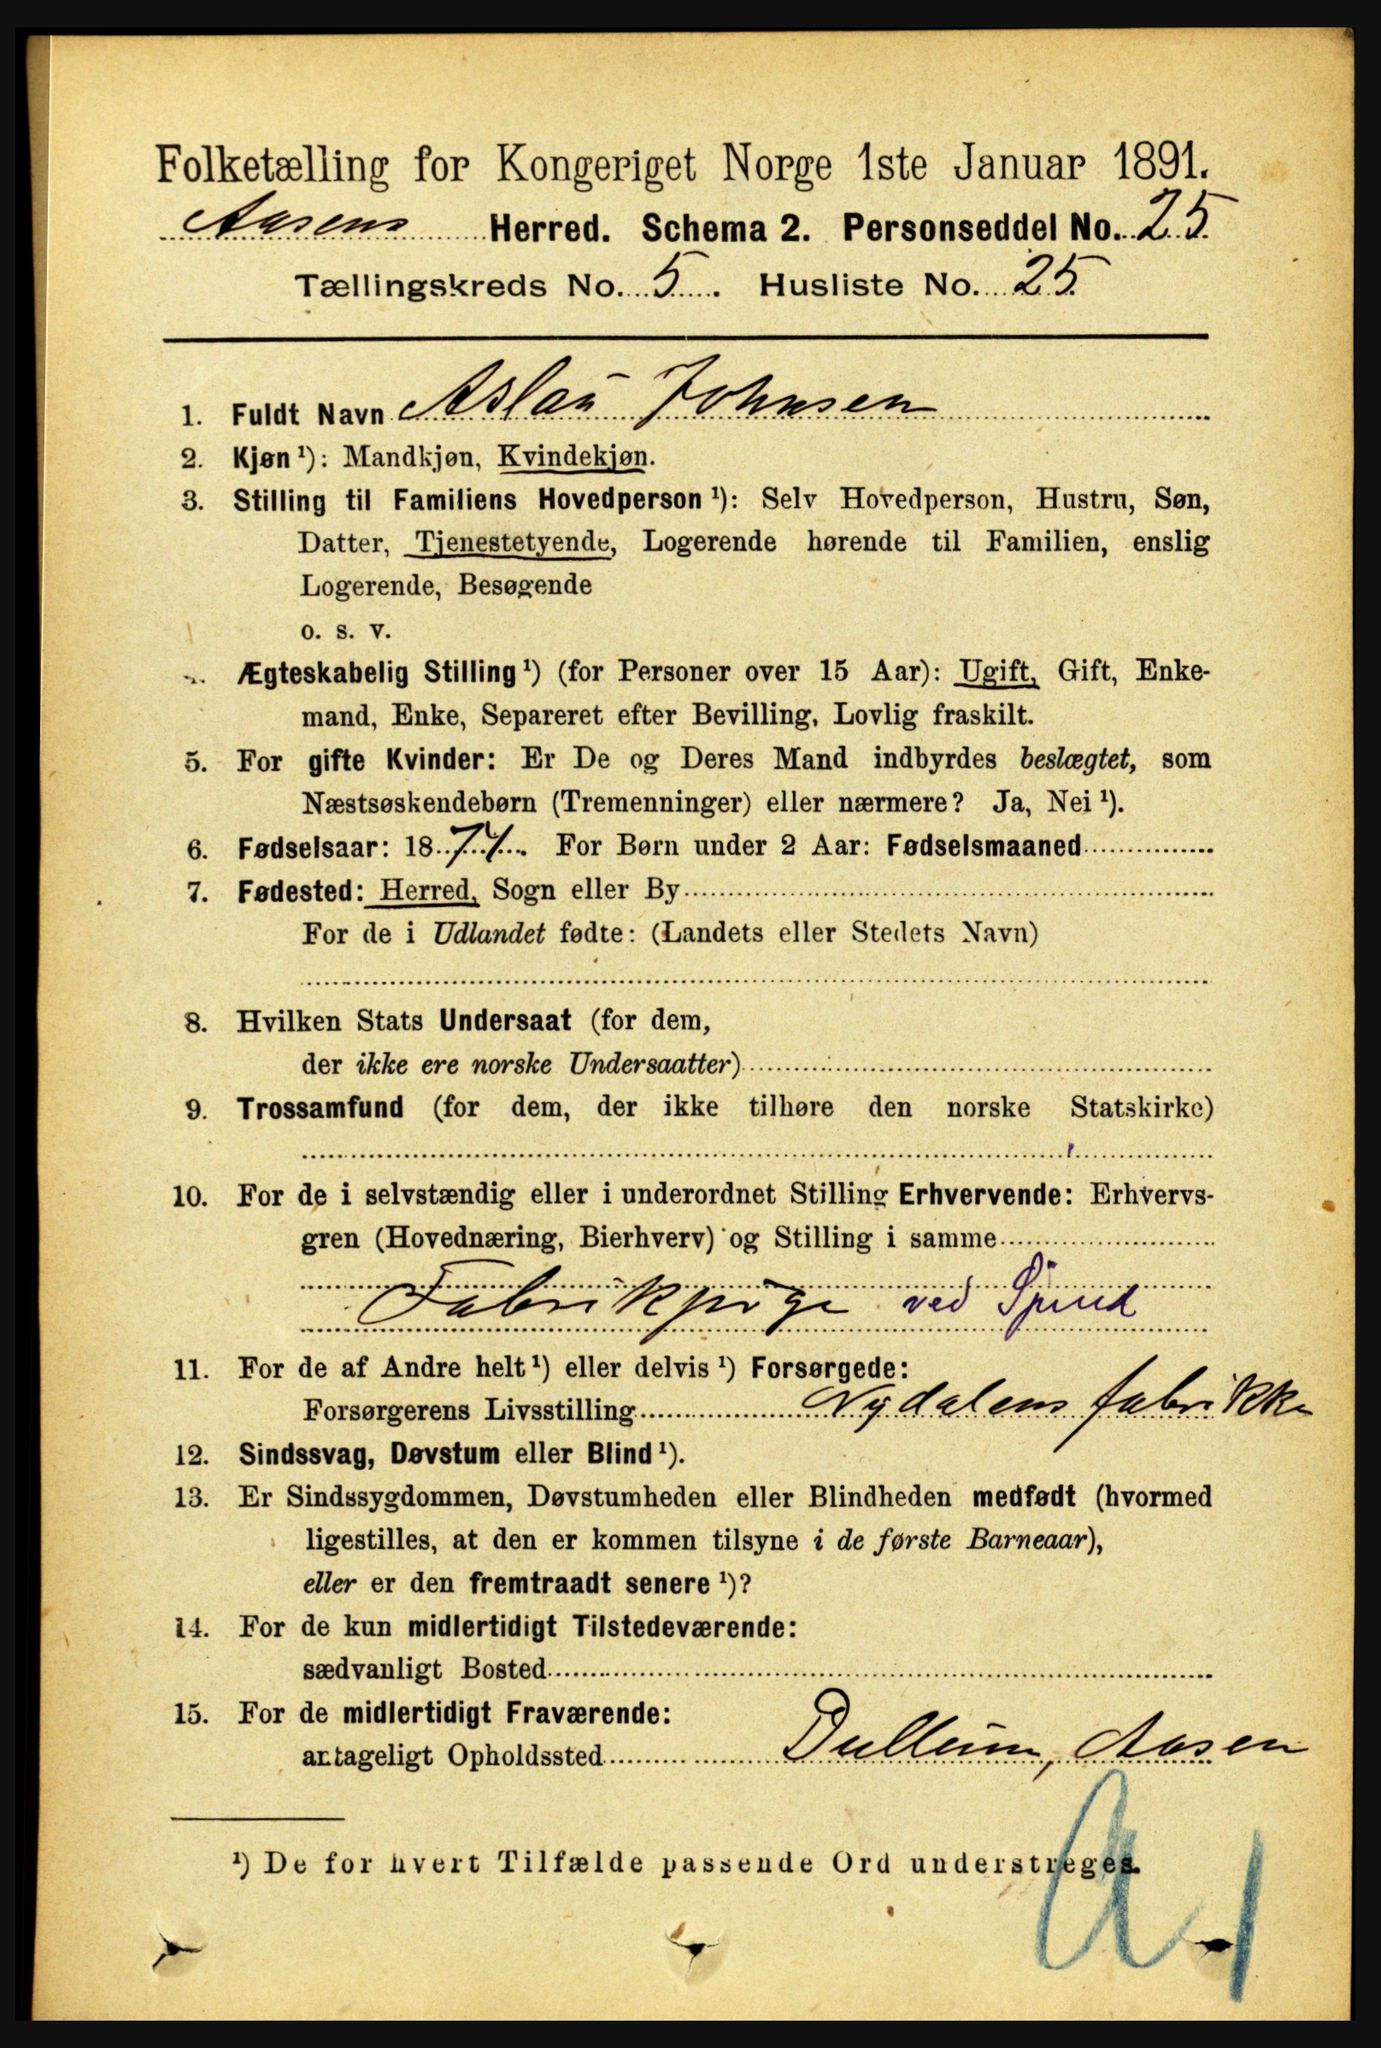 Folketælling for Kongeriget Norge 1ste Januar 1891.
Aasens Herred. Schema 2. Personseddel No. 25
Tællingskreds No. 5. Husliste No. 25
1. Fuldt Navn Aslau Johnsen
2. Kjøn ¹): Mandkjøn, Kvindekjøn.
3. Stilling til Familiens Hovedperson ¹): Selv Hovedperson, Hustru, Søn,
Datter, Tjenestetyende, Logerende hørende til Familien, enslig
Logerende, Besøgende
o. s. v.
Ægteskabelig Stilling ¹) (for Personer over 15 Aar): Ugift, Gift, Enke-
mand, Enke, Separeret efter Bevilling, Lovlig fraskilt.
5. For gifte Kvinder: Er De og Deres Mand indbyrdes beslægtet, som
Næstsøskendebørn (Tremenninger) eller nærmere? Ja, Nei ¹).
6. Fødselsaar: 1871. For Børn under 2 Aar: Fødselsmaaned
7. Fødested: Herred, Sogn eller By
For de i Udlandet fødte: (Landets eller Stedets Navn)
8. Hvilken Stats Undersaat (for dem,
der ikke ere norske Undersaatter)
9. Trossamfund (for dem, der ikke tilhøre den norske Statskirke)
10. For de i selvstændig eller i underordnet Stilling Erhvervende: Erhvervs-
gren (Hovednæring, Bierhverv) og Stilling i samme
Fabrikpige ved Spind
11. For de af Andre helt ¹) eller delvis ¹) Forsørgede:
Forsørgerens Livsstilling Nydalens fabrikke
12. Sindssvag, Døvstum eller Blind ¹).
13. Er Sindssygdommen, Døvstumheden eller Blindheden medfødt (hvormed
ligestilles, at den er kommen tilsyne i de første Barneaar),
eller er den fremtraadt senere ¹)?
14. For de kun midlertidigt Tilstedeværende:
sædvanligt Bosted
15. For de midlertidigt Fraværende:
antageligt Opholdssted Dullum, Aasen
¹) De for hvert Tilfælde passende Ord understreges.